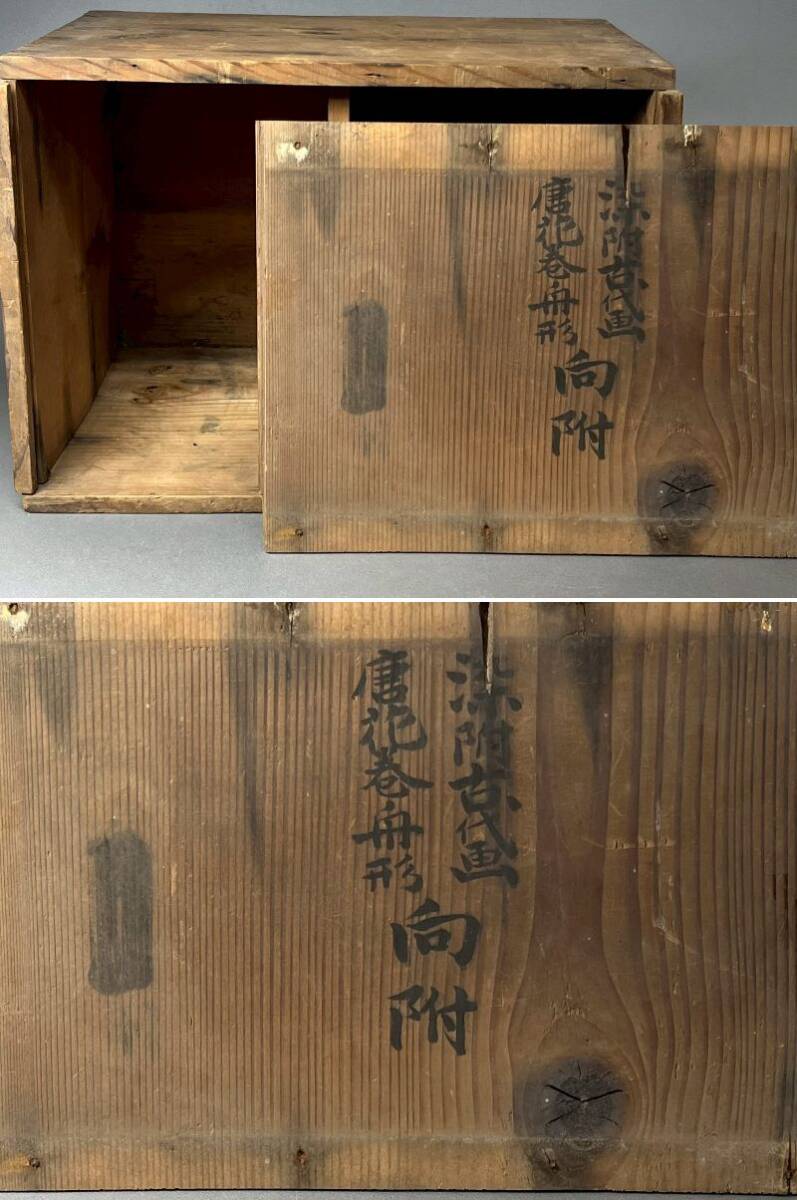 染附古代画
唐花巻舟形
向附
染附古代画
唐花巻舟形
向附